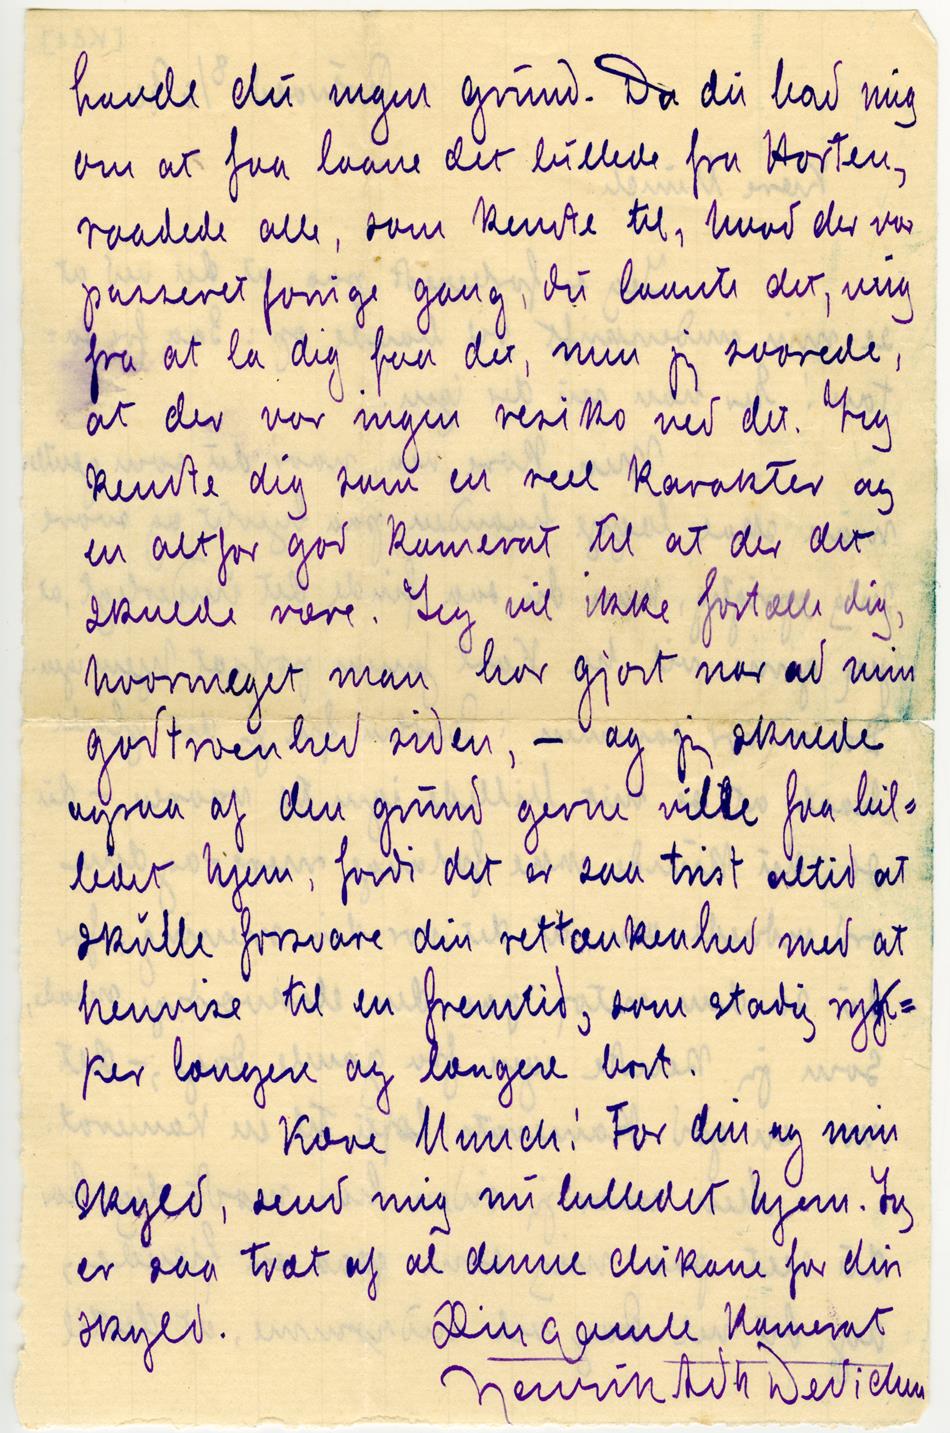 havde du ingen grund. Da du bad mig
om at faa laane det billede fra Horten,
raadede alle, som kendte til, hvad der var
passeret forrige gang, du laante det, mig
fra at la dig faa det, men jeg svarede,
at der var ingen resiko ved det. Jeg
kendte dig som en reel karakter og
en altfor god kamerat til at der det
skulde være. Jeg vil ikke fortælle dig,
hvormeget man har gjort nar ad min
godtroenhed siden, — og jeg skulde
ogsaa af den grund gerne ville faa bil=
ledet hjem, fordi det er saa trist altid at
skulle forsvare din rettænkenhed med at
henvise til en fremtid, som stadig ryk=
ker længere og længere bort.
Kære Munch! For din og min
skyld, send mig nu billedet hjem. Jeg
er saa træt af al denne chikane for din
skyld. Din gamle Kamerat
Henrik Adk Dedichen